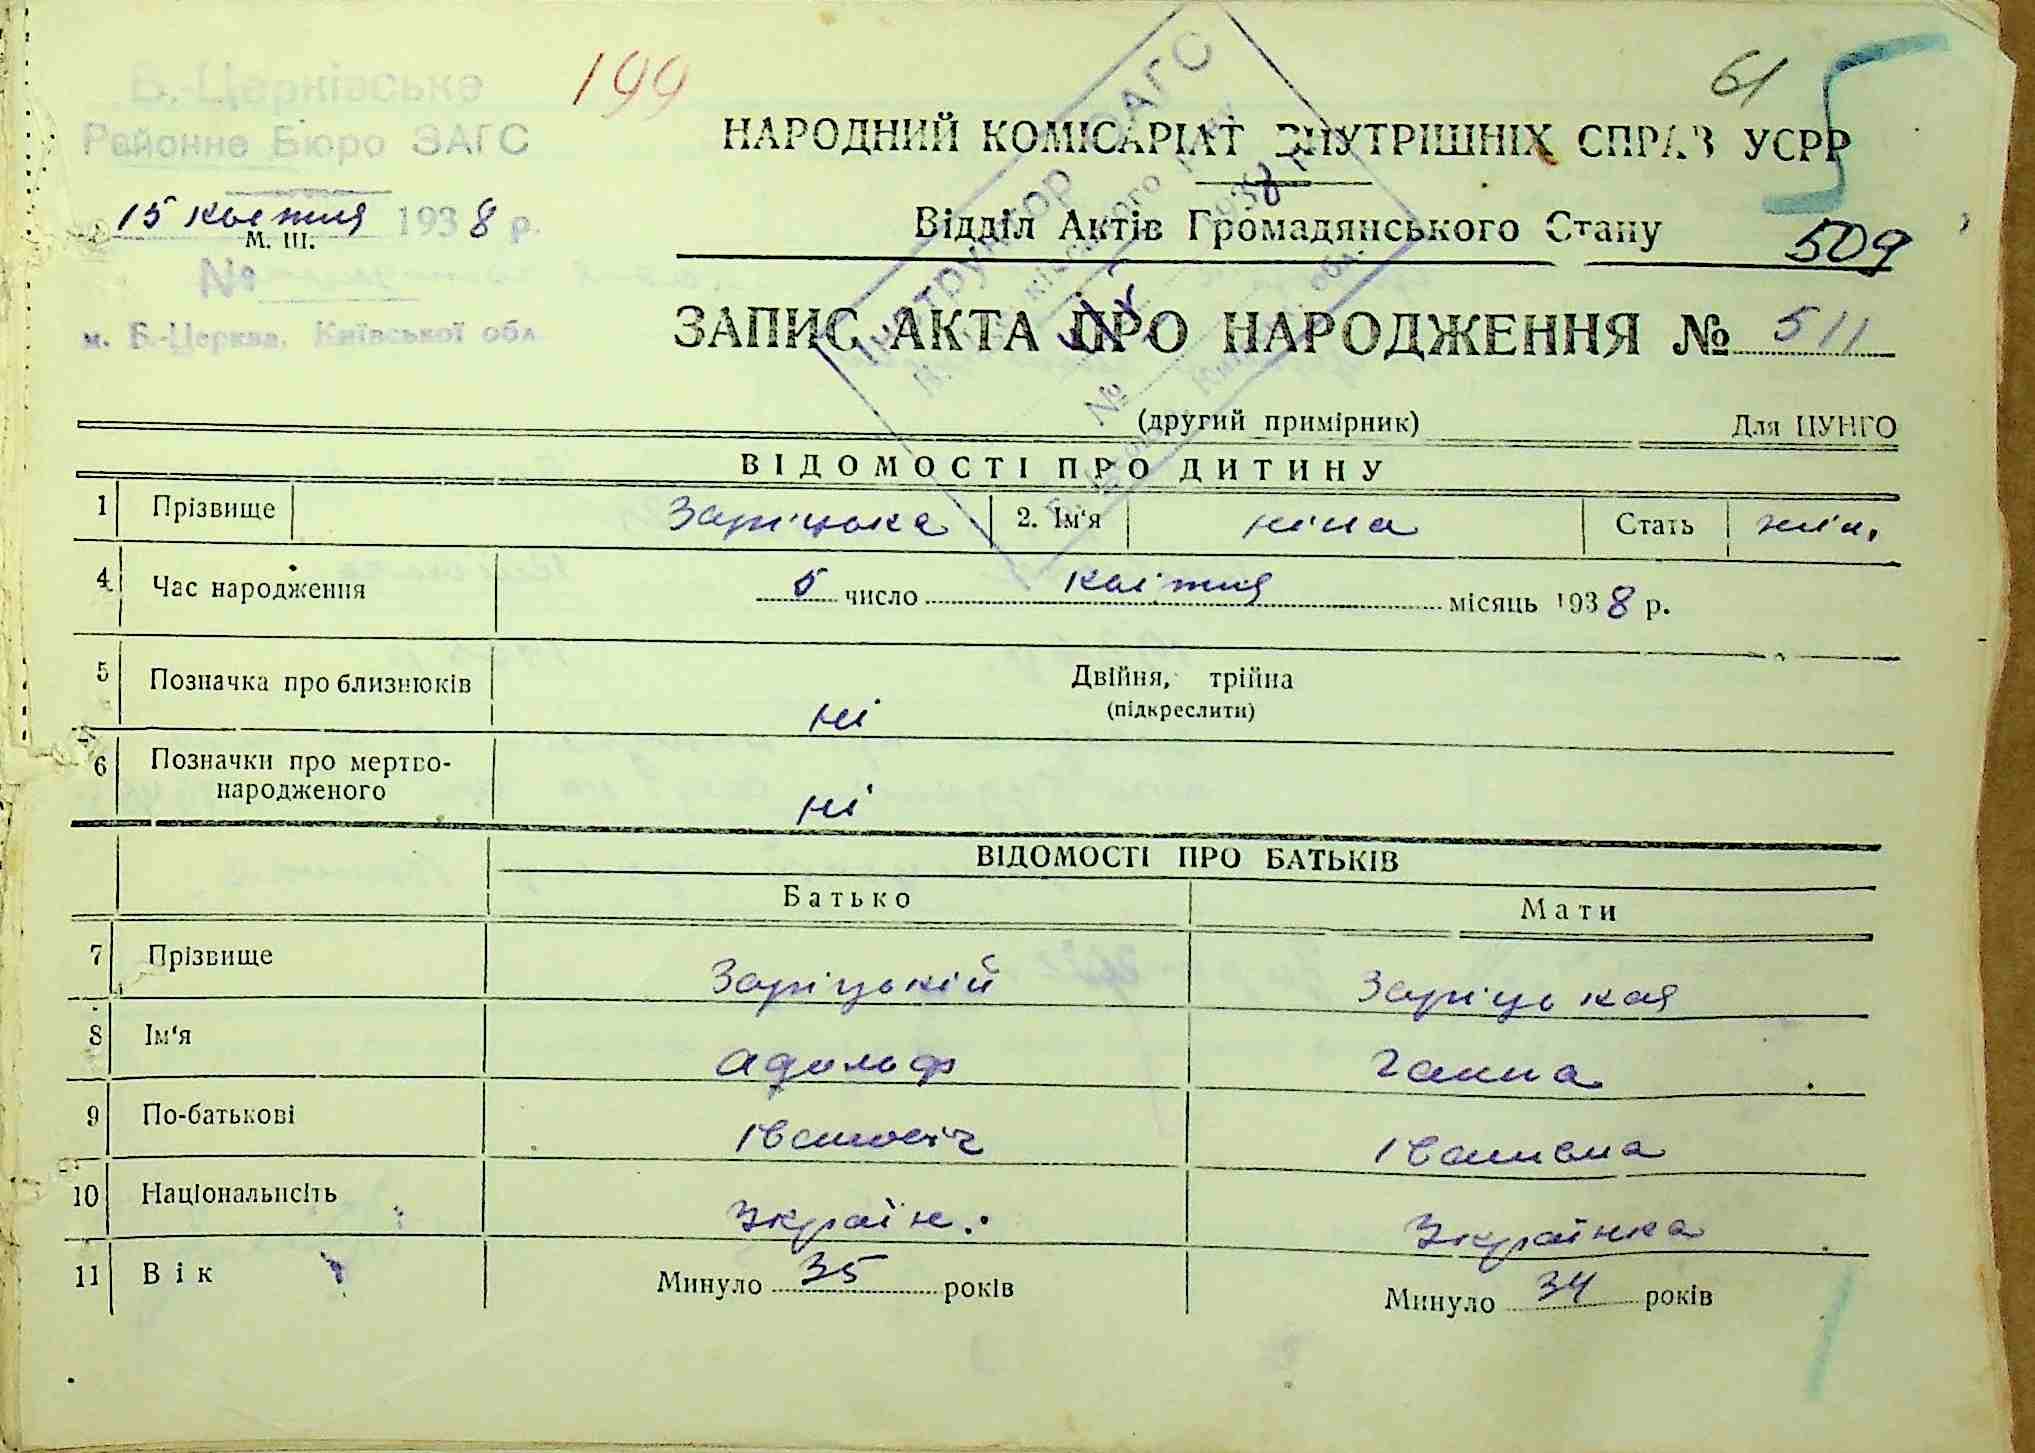 Б.-Церківське
Районне Бюро ЗАГС
15 квітня 1938 р.
М. Ш.
№
м. Б.-Церква, Київської обл.
199
61
НАРОДНИЙ КОМІСАРІАТ ВНУТРІШНІХ СПРАВ УСРР
Відділ Актів Громадянського Стану
509
Інструктор ЗАГС
1938 р.
№
обл.
ЗАПИС АКТА ПРО НАРОДЖЕННЯ № 511
(другий примірник) Для ЦУНГО
ВІДОМОСТІ ПРО ДИТИНУ
1 Прізвище Заріцька 2. Ім'я Ніна Стать жін.
4 Час народження 5 число квітня місяць 1938 р.
5 Позначка про близнюків ні Двійня, трійна
(підкреслити)
6 Позначки про мертво-
народженого ні
ВІДОМОСТІ ПРО БАТЬКІВ
Батько Мати
7 Прізвище Заріцькій Заріцькая
8 Ім'я Адольф Ганна
9 По-батькові Іванович Іванівна
10 Національність Україн. Українка
11 Вік Минуло 35 років Минуло 34 років